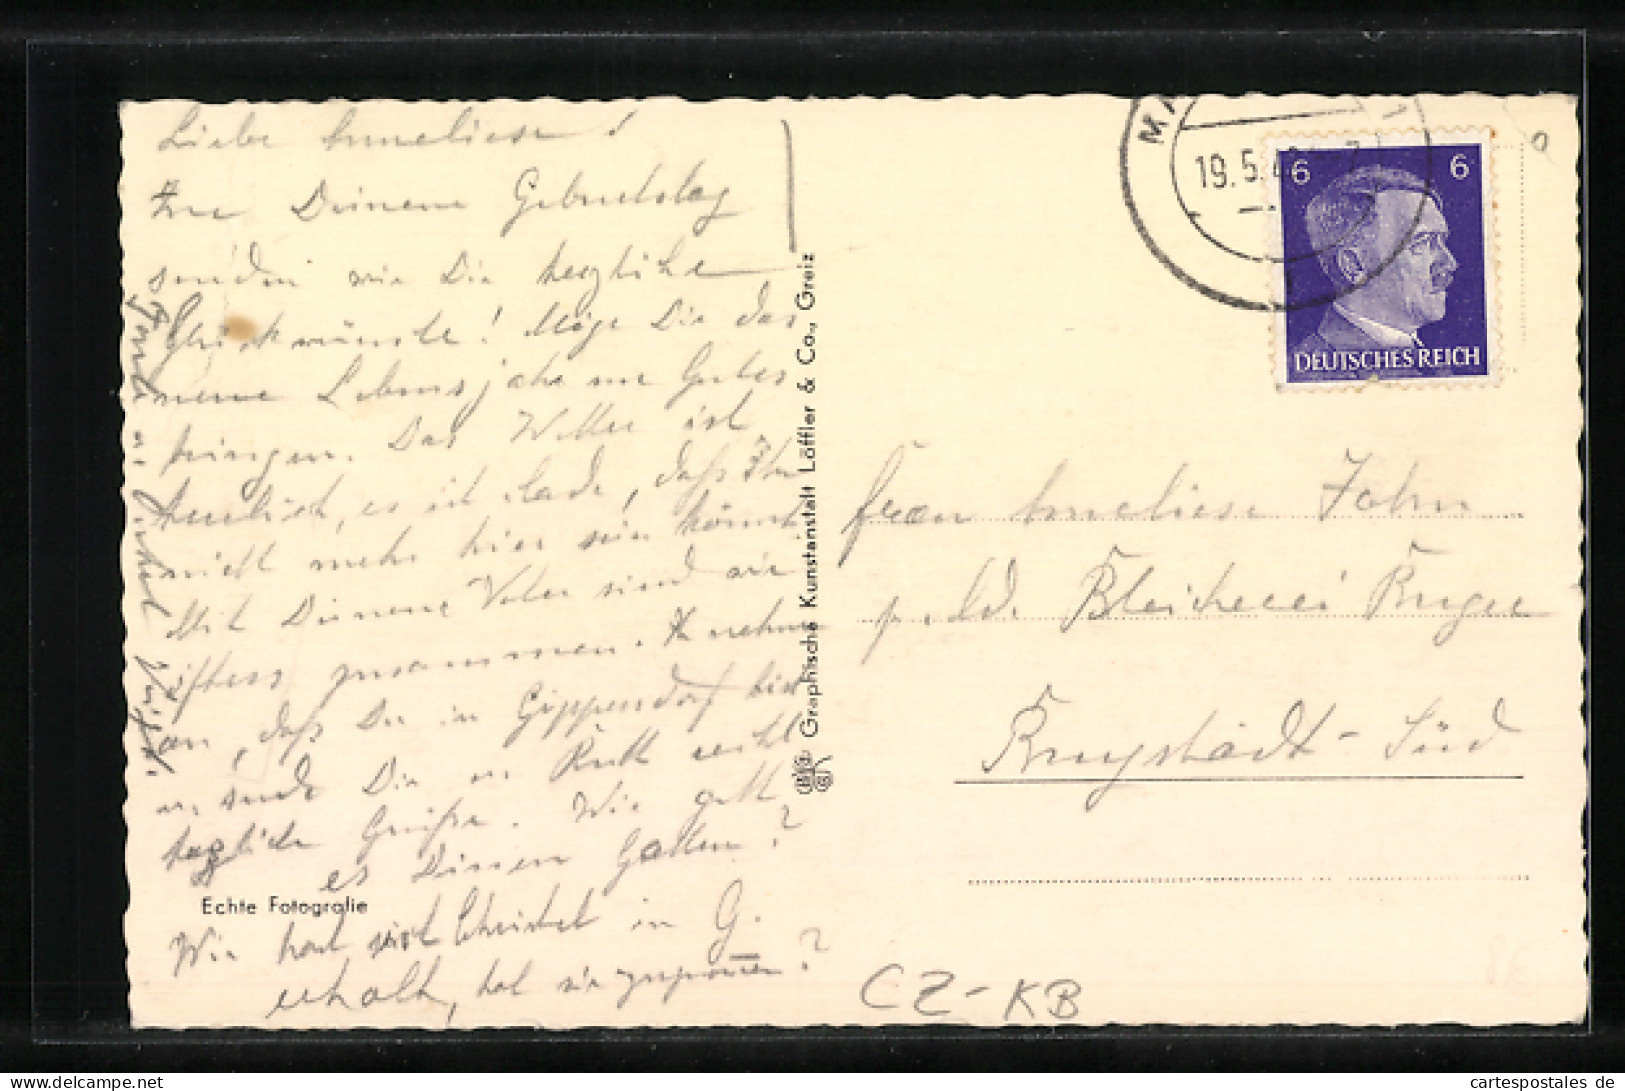 Liebe Anneliese!
Zu Deinem Geburtstag
senden wir Dir herzliche
Glückwünsche! Möge Dir das
neue Lebensjahr nur Gutes
bringen. Das Wetter ist
herrlich, es ist schade, daß Ihr
nicht mehr hier sein könnt
Mit Deinem Vater sind wir
öfters zusammen. Ich nehme
an, daß Du in Gippersdorf bist
u. sende Dir u. recht
herzliche Grüße. Wie geht
es Deinem Gatten?
Echte Fotografie
Wie hat sich Christel in G.
erholt, hat sie zugenommen?
Graphische Kunstanstalt Löffler & Co., Greiz
19.5.4
6 6
DEUTSCHES REICH
Frau Anneliese John
p. Ad. Bleicherei
Burgstädt-Süd
CZ-KB
cartespostales de